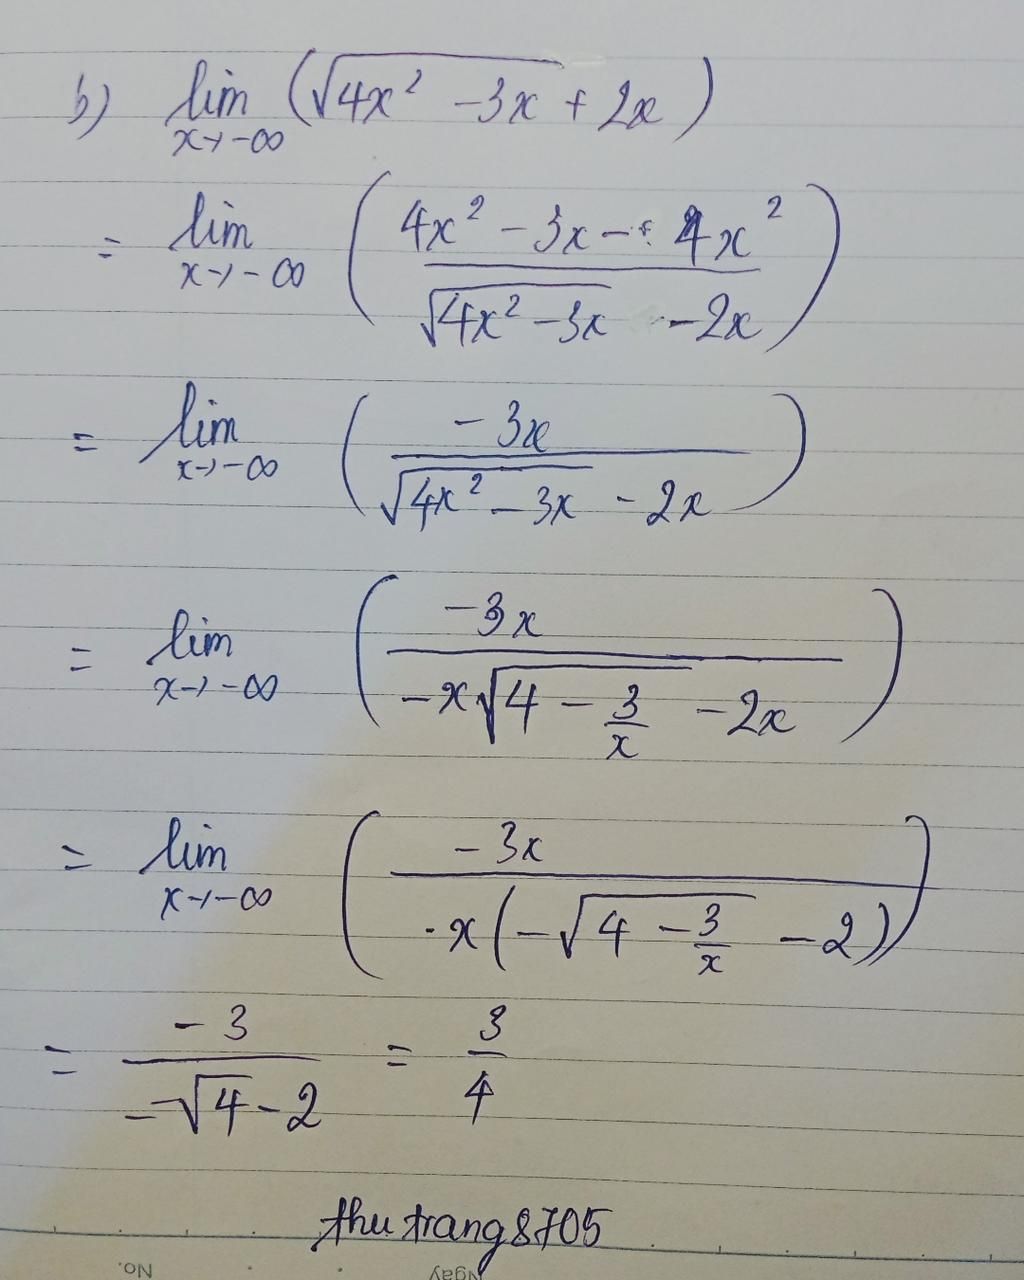 b) lim x→-∞ (√(4x² - 3x) + 2x)
= lim x→-∞ ((4x² - 3x - 4x²) / (√(4x² - 3x) - 2x))
= lim x→-∞ (-3x / (√(4x² - 3x) - 2x))
= lim x→-∞ (-3x / (-x√(4 - 3/x) - 2x))
= lim x→-∞ (-3x / (x(-√(4 - 3/x) - 2)))
= -3 / (-√4 - 2) = 3/4
thutrang8705
No. Ngày